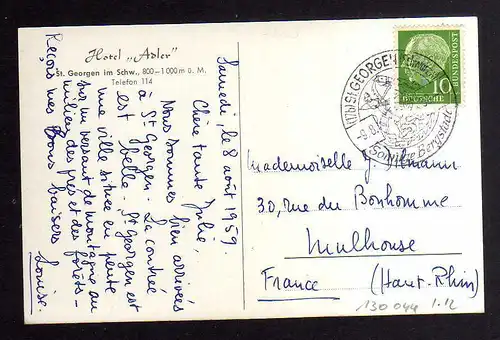 Hotel „Adler"
St. Georgen im Schw., 800–1000 m ü. M.
Telefon 114
Samedi, le 8 août 1959.
Chère tante Julie,
Nous sommes bien arrivées
à St Georgen. La contrée
est belle. St Georgen est
une ville située en pente
sur un versant de montagne au
milieu des prés et des forêts.
Reçois mes bons baisers
Louise.
(17b) ST GEORGEN (SCHWARZW)
Sonnige Bergstadt
DEUTSCHE BUNDESPOST
10
Mademoiselle J.
30, rue du Bonhomme
Mulhouse
France (Haut-Rhin)
130 044 1.12